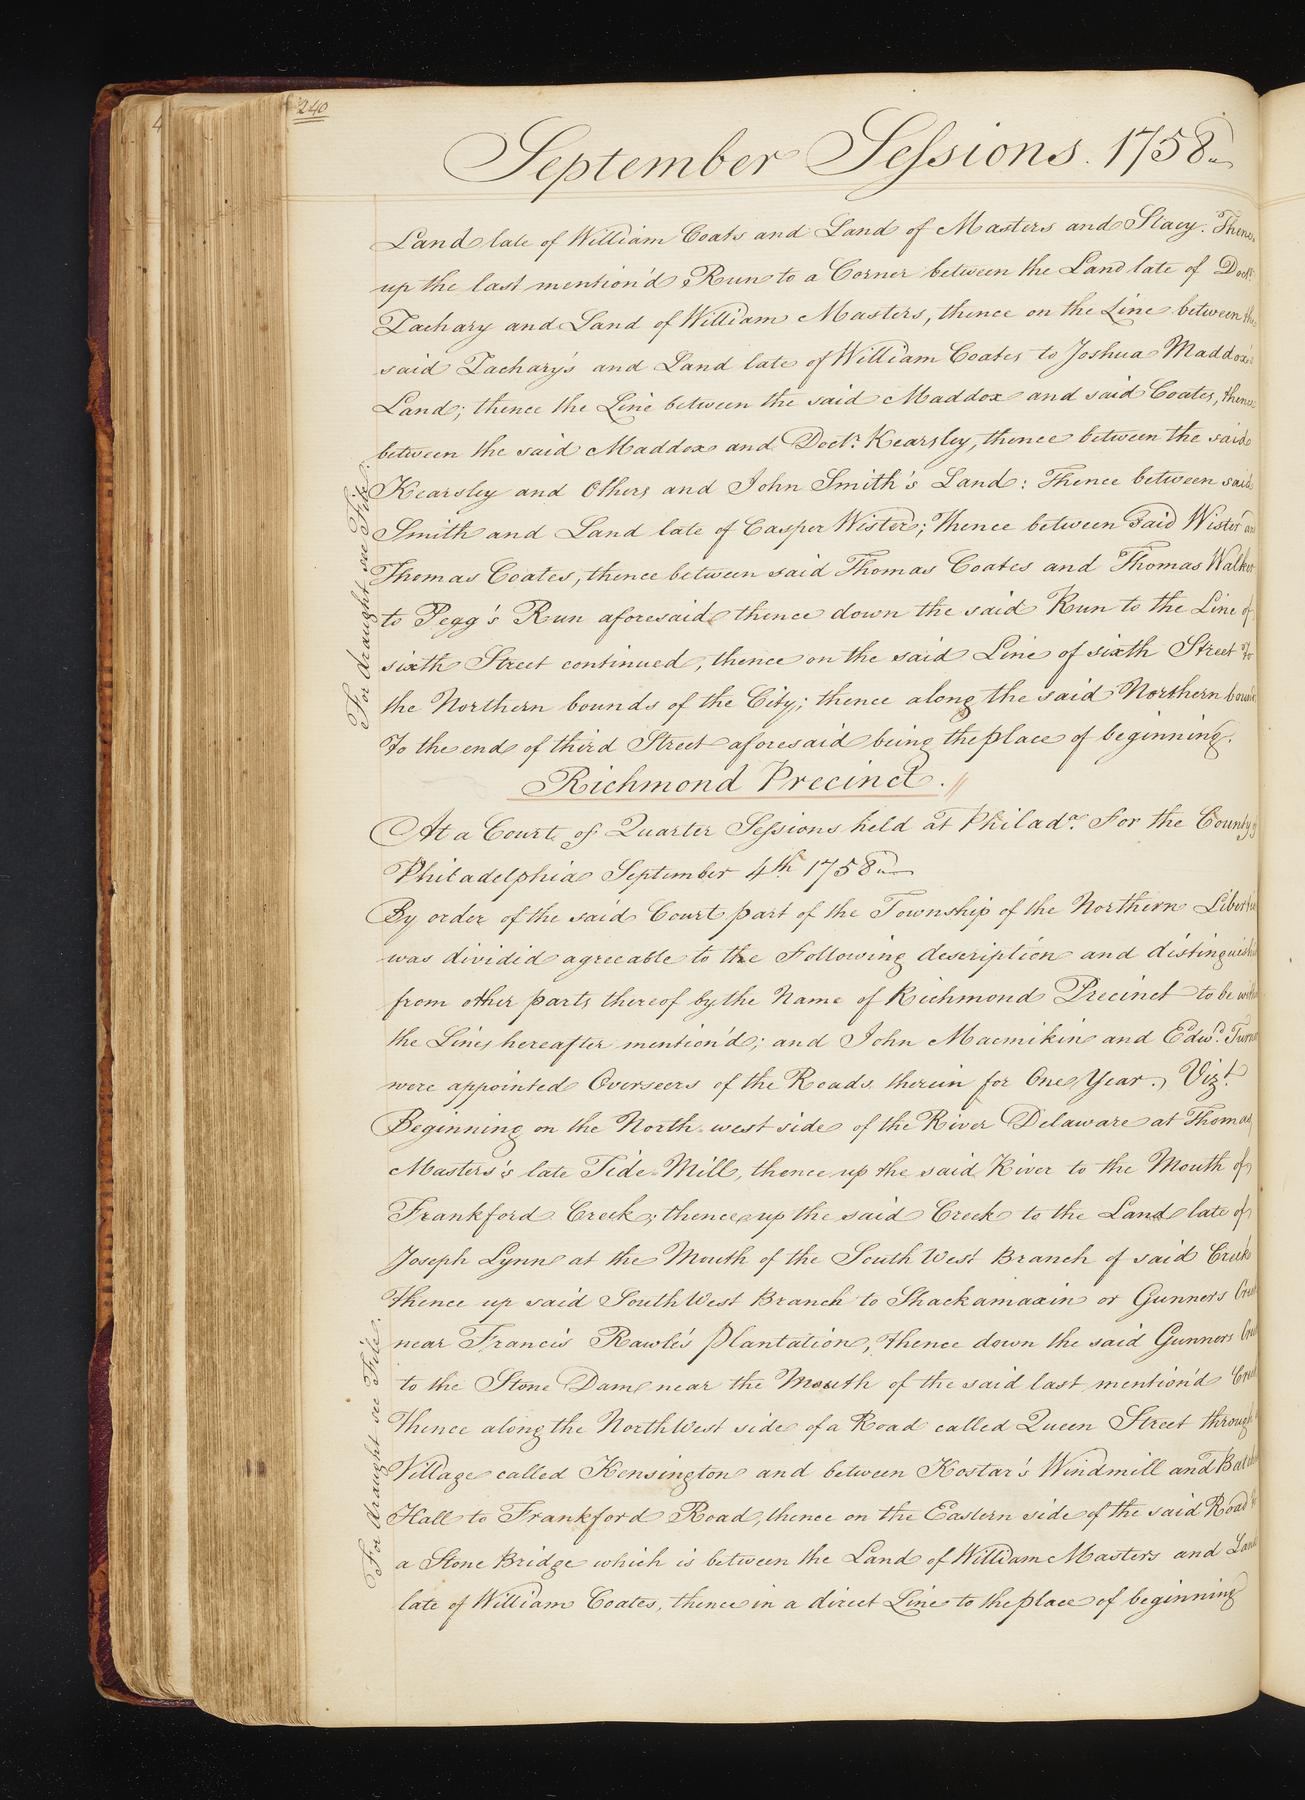 240
September Sessions. 1758
Land late of William Coats and Land of Masters and Stacy. Thence
up the last mention'd Run to a Corner between the Land late of Doctr.
Zachary and Land of William Masters, thence on the Line between the
said Zachary's and Land late of William Coates to Joshua Maddox's
Land; thence the Line between the said Maddox and said Coates, thence
between the said Maddox and Doctr. Kearsley, thence between the said
Kearsley and Others and John Smith's Land: Thence between said
Smith and Land late of Casper Wister; Thence between said Wister and
Thomas Coates, thence between said Thomas Coates and Thomas Walker
to Pegg's Run aforesaid thence down the said Run to the Line of
sixth Street continued, thence on the said Line of sixth Street to
the Northern bounds of the City; thence along the said Northern bounds
To the end of third Street aforesaid being the place of beginning.
For draught see File.
Richmond Precinct.
At a Court of Quarter Sessions held at Philada. For the County of
Philadelphia September 4th 1758
By order of the said Court part of the Township of the Northern Liberties
was divided agreeable to the Following description and distinguished
from other parts thereof by the Name of Richmond Precinct to be within
the Lines hereafter mention'd; and John Macmikin and Edwd. Turner
were appointed Overseers of the Roads therein for One Year. Vizt.
Beginning on the North-west side of the River Delaware at Thomas
Masters's late Tide-Mill, thence up the said River to the Mouth of
Frankford Creek; thence up the said Creek to the Land late of
Joseph Lynn at the Mouth of the South West Branch of said Creek
Thence up said South West Branch to Shackamaxin or Gunners Creek
near Francis Rawle's Plantation, thence down the said Gunners Creek
to the Stone Dam near the Mouth of the said last mention'd Creek
Thence along the North West side of a Road called Queen Street through
Village called Kensington and between Kostar's Windmill and
Hall to Frankford Road, thence on the Eastern side of the said Road to
a Stone Bridge which is between the Land of William Masters and Land
late of William Coates, thence in a direct Line to the place of beginning
For draught see File.